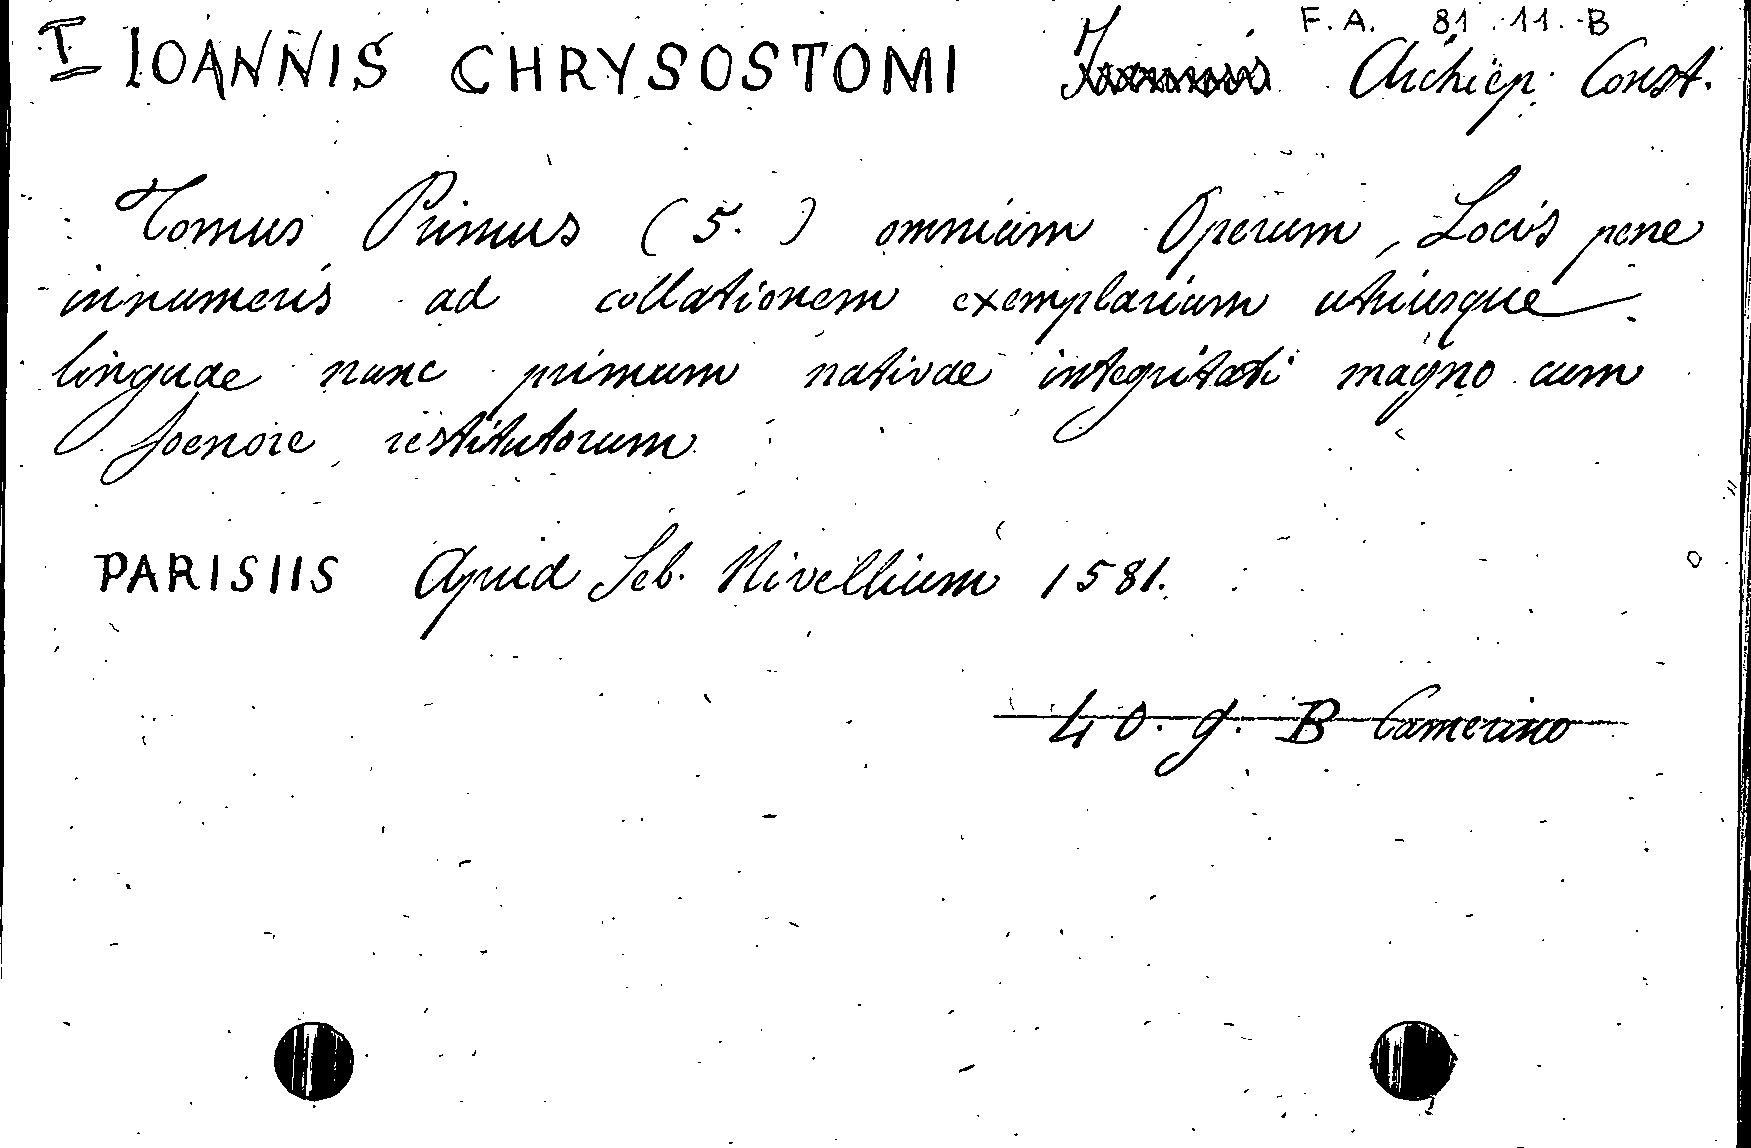 F. A. 81 11. B
I IOANNIS CHRYSOSTOMI Archiep. Const.
Tomus Primus ( 5. ) omnium Operum, Locis pene
innumeris ad collationem exemplarium utriusque
linguae nunc primum nativae integritati magno cum
foenore restitutorum
PARISIIS Apud Seb. Nivellium 1581.
40. g. B Camerino